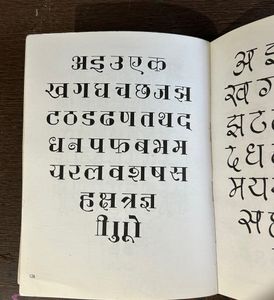 अ इ उ ए क
ख ग घ च छ ज झ
ट ठ ड ढ ण त थ द
ध न प फ ब भ म
य र ल व श ष स
ह क्ष त्र ज्ञ
अ इ
ख ग
झ ट
द ध
म य
स